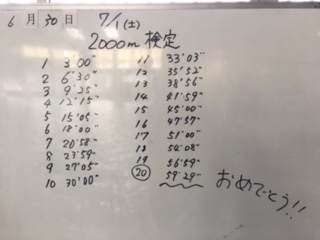 6月30日 7/1(土)
2000m 検定
1 3'00"
2 6'30"
3 9'25"
4 12'15"
5 15'05"
6 18'00"
7 20'58"
8 23'59"
9 27'05"
10 30'00"
11 33'03"
12 35'52"
13 38'56"
14 41'59"
15 45'00"
16 47'57"
17 51'00"
18 54'08"
19 56'59"
20 59'29"
おめでとう!!